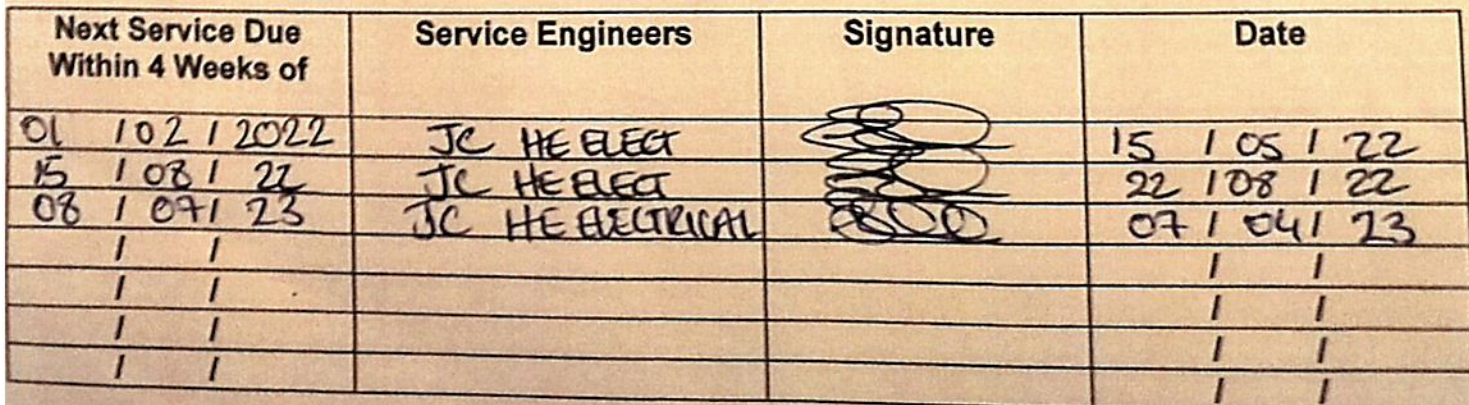 Next Service Due Within 4 Weeks of Service Engineers Signature Date
01 / 02 / 2022 JC HE ELECT 15 / 05 / 22
15 / 08 / 22 JC HE ELECT 22 / 08 / 22
08 / 07 / 23 JC HE ELECTRICAL 07 / 04 / 23
/ / / /
/ / / /
/ / / /
/ / / /